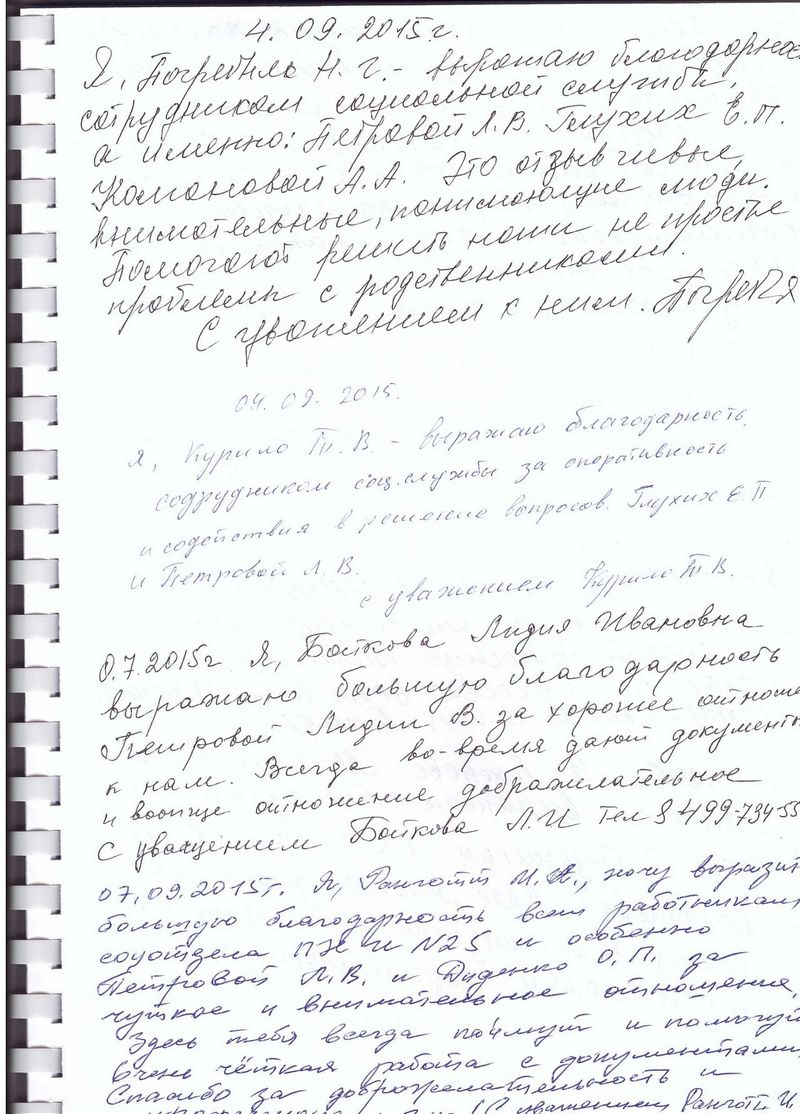 4. 09. 2015г.
Я, Погребиль Н. Г. - выражаю благодарнос
сотрудникам социальной службы,
а именно: Петровой Л.В. Глухих Е.П.
Комоновой А.А. Это отзывчивые,
внимательные, понимающие люди.
Помогают решить наши не простые
проблемы с родственниками.
С уважением к ним.
04.09. 2015.
я, Курило Т. В. - выражаю благодарность,
содрудником соц.службы за оперативность
и содействия в решение вопросов. Глухих Е. П.
и Петровой Л. В.
с уважением Курило Т В.
0.7.2015г Я, Боткова Лидия Ивановна
выражаю большую благодарность
Петровой Лидии В. за хорошее отноше
к нам. Всегда во-время дают документы
и вообще отношение доброжелательное
С уважением Боткова Л.И Тел 8 499-734-55
07.09.2015г. Я, Ранготт М.А., хочу выразит
большую благодарность всем работникам
соцотдела и N25 и особенно
Петровой Л.В. и Диденко О.П. за
чуткое и внимательное отношение.
Здесь тебя всегда поймут и помогут
Очень чёткая работа с документами
Спасибо за доброжелательность и
С уважением Ранготт